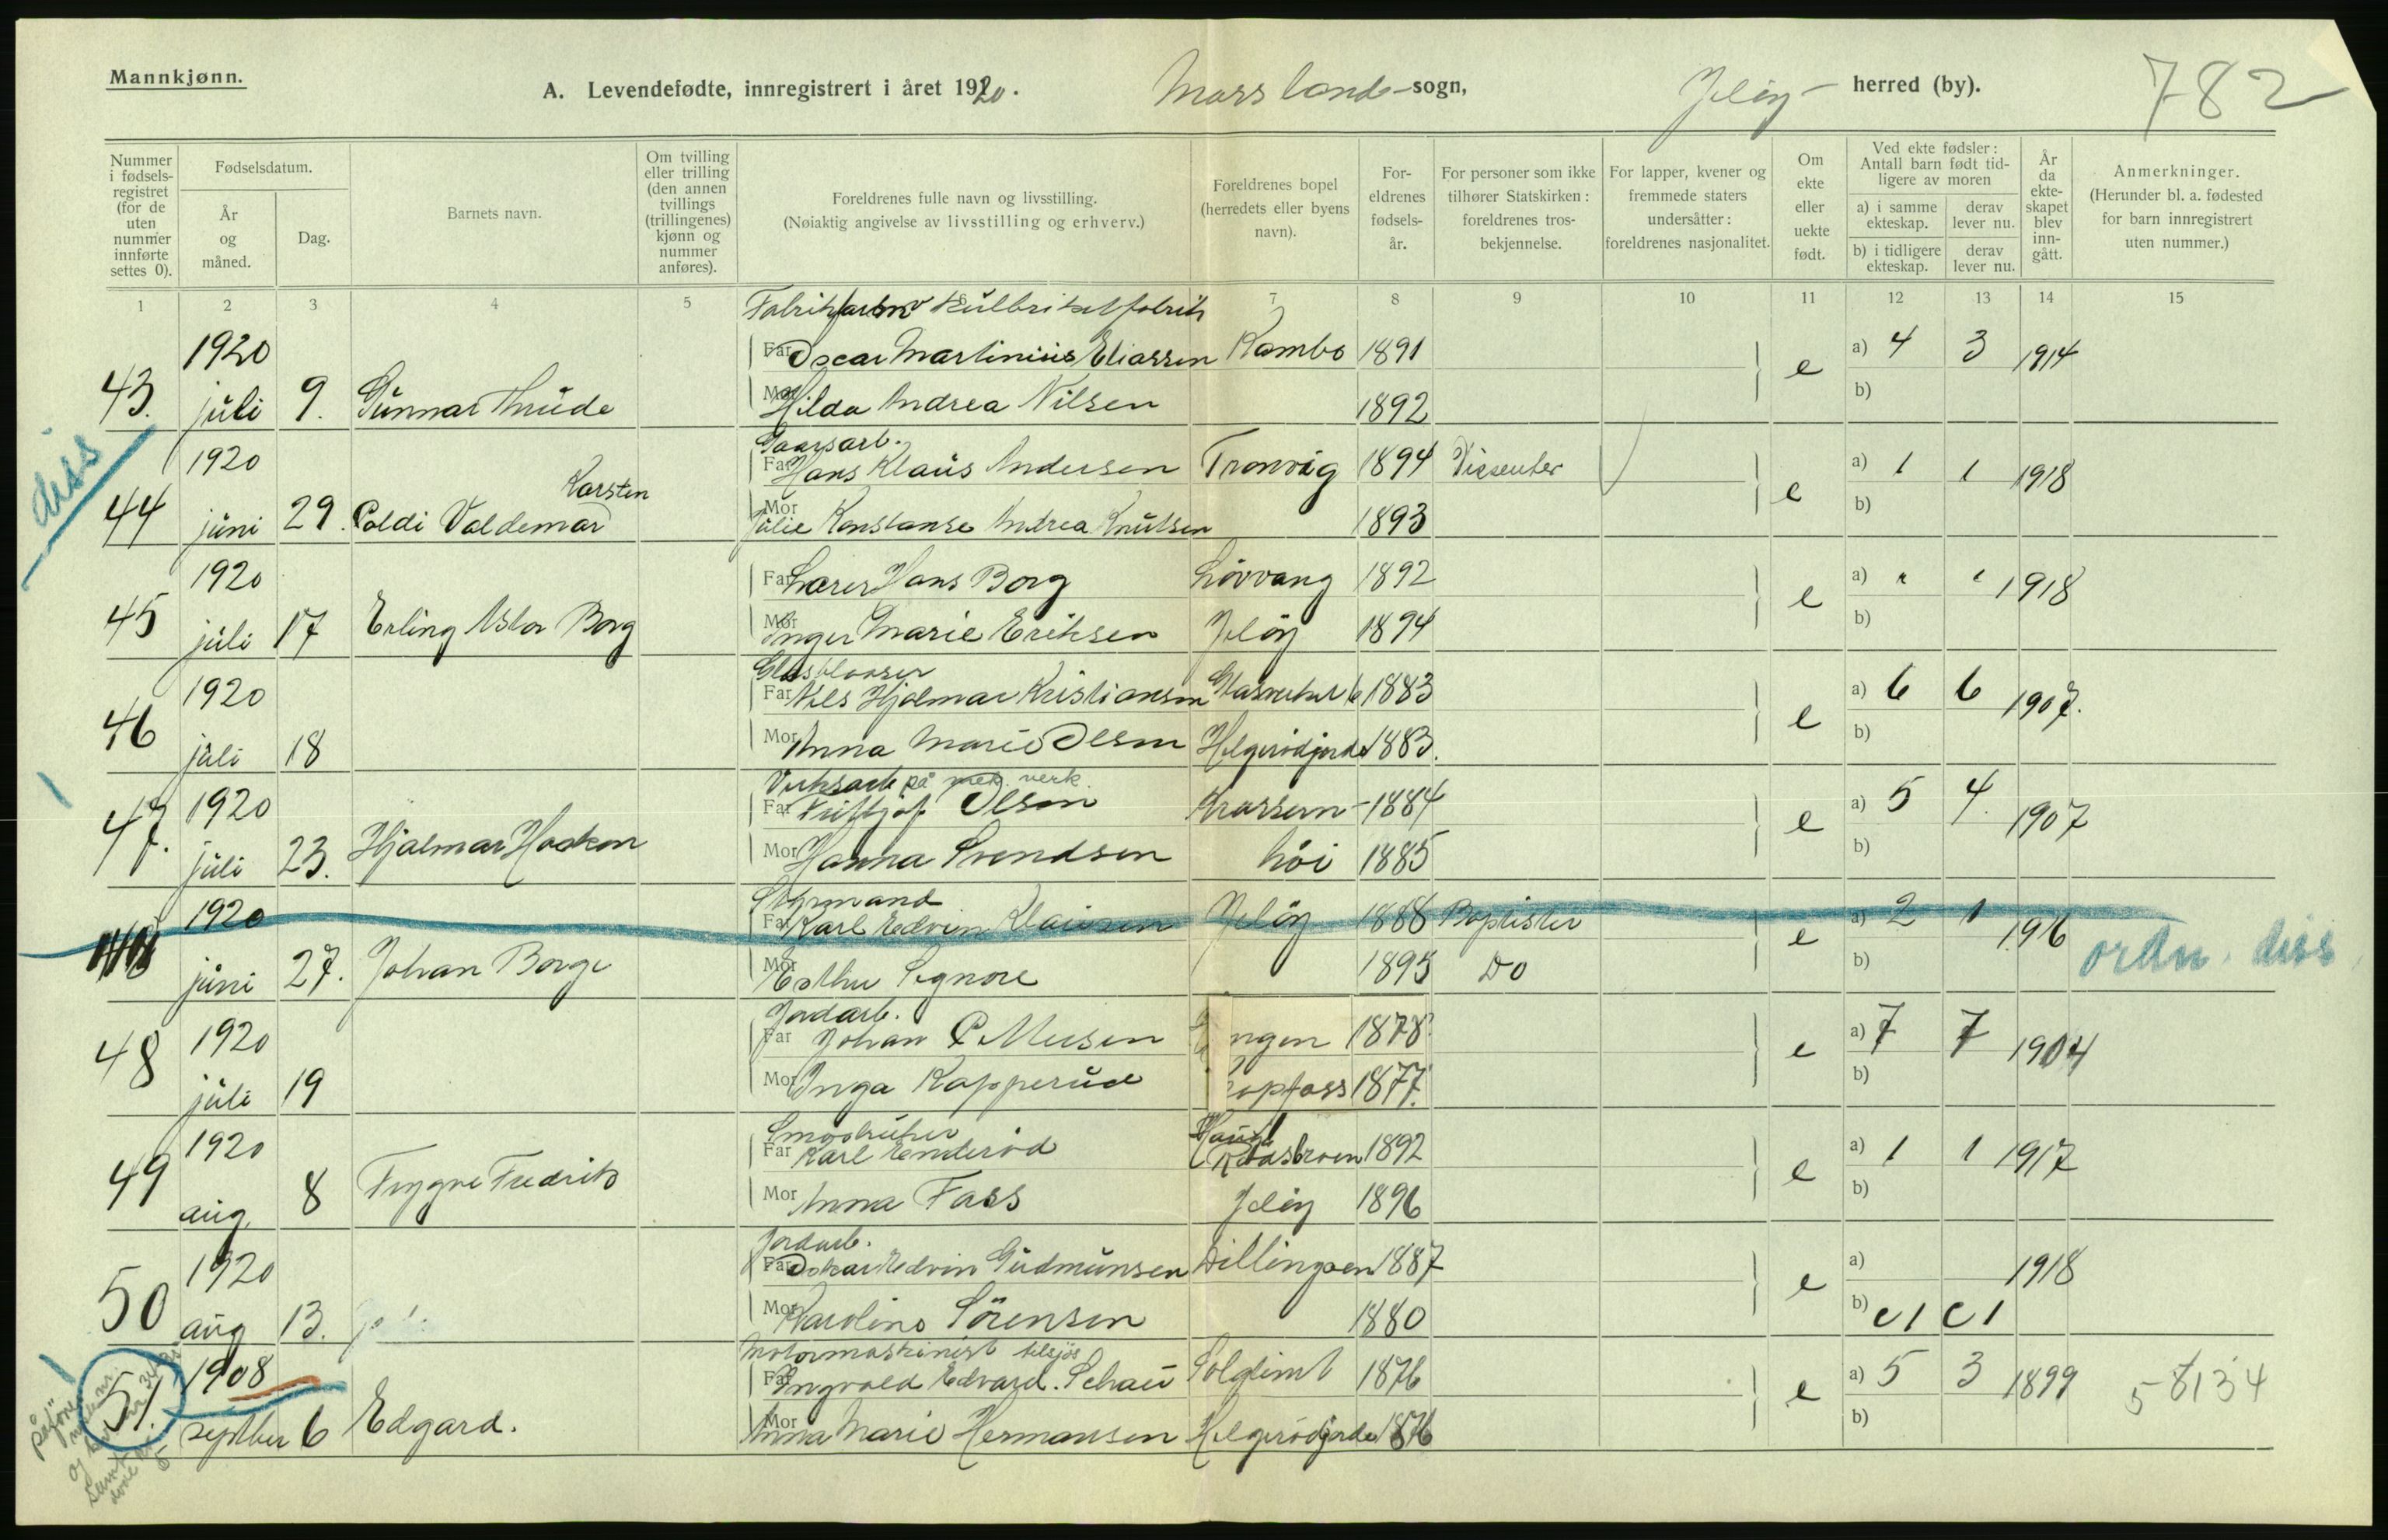 Mannkjønn.
A. Levendefødte, innregistrert i året 1920.
Moss lands-sogn,
Jeløy- herred (by).
782
Nummer i fødsels-registret (for de uten nummer innførte settes 0).
Fødselsdatum.
År og måned.
Dag.
Barnets navn.
Om tvilling eller trilling (den annen tvillings (trillingenes) kjønn og nummer anføres).
Foreldrenes fulle navn og livsstilling.
(Nøiaktig angivelse av livsstilling og erhverv.)
Foreldrenes bopel (herredets eller byens navn).
For-eldrenes fødsels-år.
For personer som ikke tilhører Statskirken: foreldrenes tros-bekjennelse.
For lapper, kvener og fremmede staters undersåtter: foreldrenes nasjonalitet.
Om ekte eller uekte født.
Ved ekte fødsler: Antall barn født tid-ligere av moren
a) i samme ekteskap.
derav lever nu.
b) i tidligere ekteskap.
derav lever nu.
År da ekte-skapet blev inn-gått.
Anmerkninger.
(Herunder bl. a. fødested for barn innregistrert uten nummer.)
1 2 3 4 5 7 8 9 10 11 12 13 14 15
43. 1920 juli 9. Gunnar Thude
Far Oscar Martinius Eliassen Kambo 1891 e a) 4 3 1914
Mor Hilda Andrea Nilsen 1892 b)
diss
Gaarsarb.
44 1920 juni 29. Poldi Valdemar Karsten
Far Hans Klaus Andersen Tronvig 1894 Dissenter e a) 1 1 1918
Mor Julie Konstanse Andrea Knutsen 1893 b)
45 1920 juli 17 Erling Aslor Borg
Far Lærer Hans Borg Løvvang 1892 e a) " " 1918
Mor Inger Marie Eriksen Jeløy 1894 b)
Glasblaaser
46 1920 juli 18
Far Nils Hjalmar Kristiansen Glasverket 1883 e a) 6 6 1907.
Mor Anna Marie Olsen Helgerødgjorde 1883. b)
Verksarb på mek verk
47. 1920 juli 23. Hjalmar Haakon
Far Fritjof Olsen Krossern- 1884 e a) 5 4. 1907
Mor Hanna Svendsen høi 1885 b)
Styrmand
1920 juni 27. Johan Borge
Far Karl Edvin Klausen Jeløy 1888 Baptister e a) 2 1 1916
Mor Esther Signore 1895 Do b)
ordn. diss
Jordarb.
48 1920 juli 19
Far Johan P Meisen ngen 1878 e a) 7 7 1904
Mor Inga Kapperud opfoss 1877. b)
Smaabruker
49 1920 aug. 8 Trygve Fredrik
Far Karl Enderød 1892 e a) 1 1 1917
Mor Anna Fass Jeløy 1896 b)
Jordarb.
50 1920 aug 13.
Far Oskar Edvin Gudmunsen Dillingøen 1887 e a) 1918
Mor Karoline Sörensen 1880 b) 1 1
Motormaskinist tilsjøs
51. 1908 septber 6 Edgard.
Far Ingvald Edvard. Schau Solglimt 1876 e a) 5 3 1899 58134
Mor Anna Marie Hermansen Helgerødgjorde 1876 b)